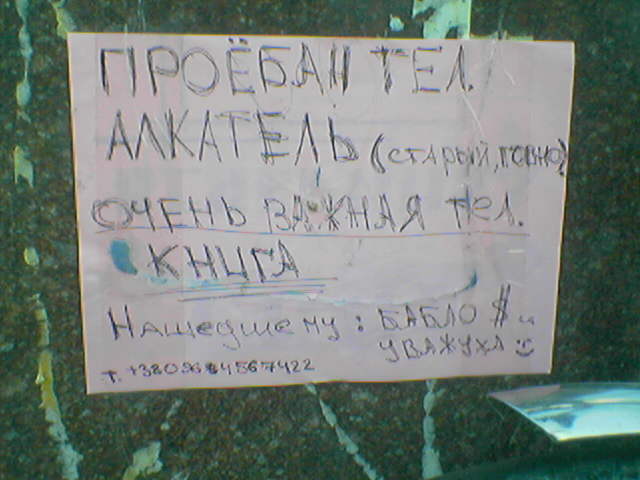 ПРОЁБАН ТЕЛ.
АЛКАТЕЛЬ (СТАРЫЙ, ГОВНО)
ОЧЕНЬ ВАЖНАЯ ТЕЛ.
КНИГА
Нашедшему: БАБЛО $..
УВАЖУХА☺
т. +38096 4567422